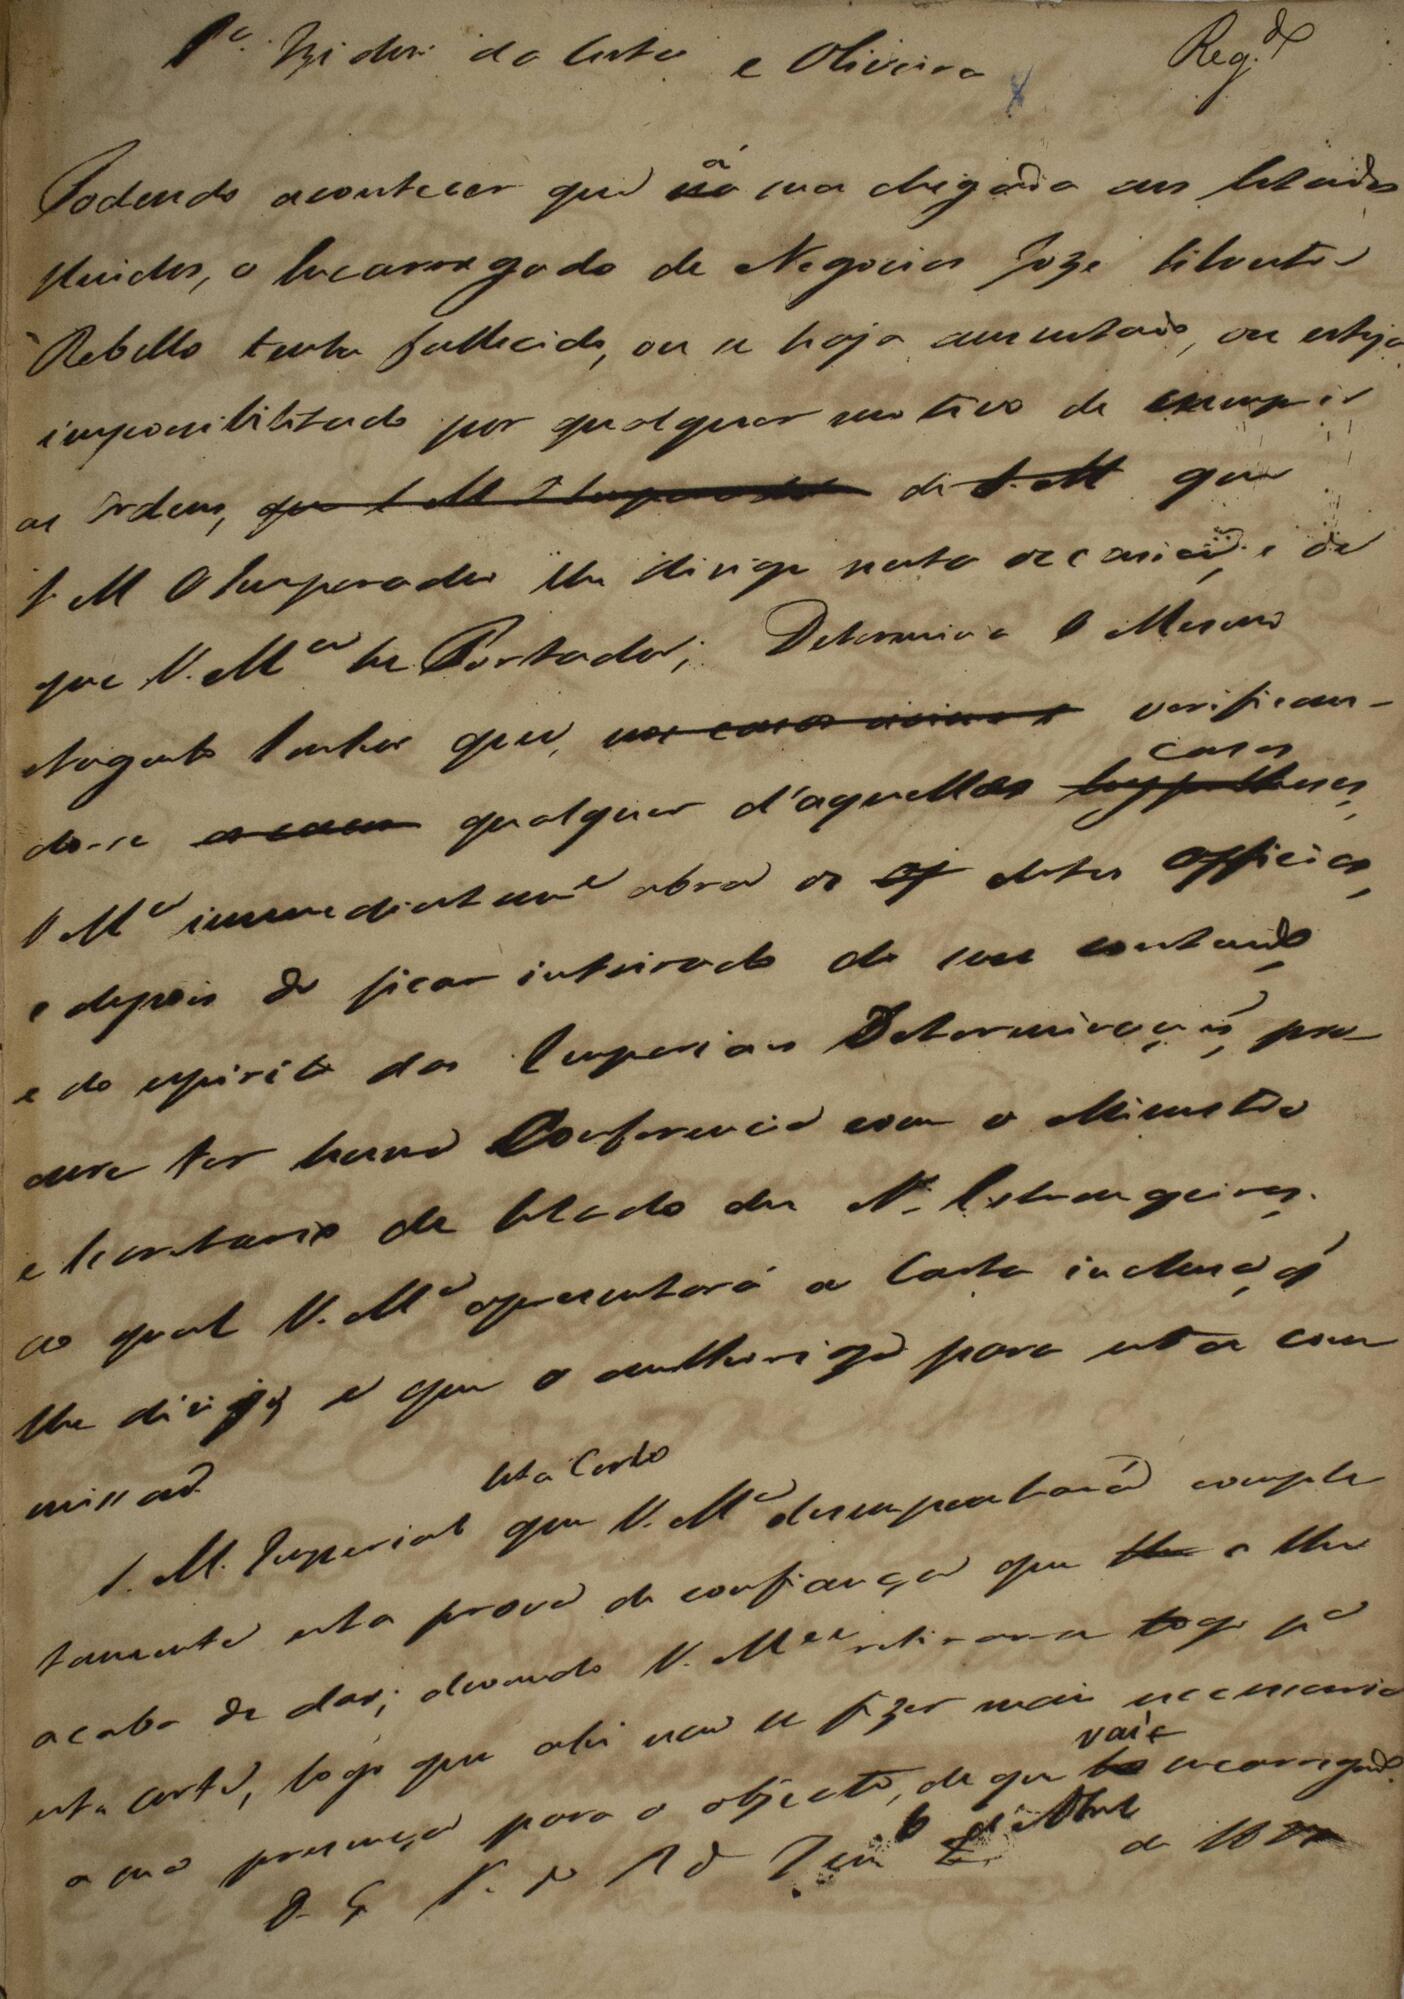 Pa. Izidoro da Costa e Oliveira Reg.do
Podendo acontecer que á sua chegada aos Estados
Unidos, o Encarregado de Negocios Joze Silvestre
Rebello tenha fallecido, ou se haja ausentado, ou esteja
impossibilitado por qualquer motivo de cumprir
as ordens, que S M O Imperador de S. M que
S. M O Imperador lhe dirige nesta occasião, e de
que V. M.ce he Portador; Determina O Mesmo
Augusto Senhor que, nos casos acima verifican-
do-se qualquer d'aquelles hyppotheses, casos
V M.ce immediatam.e abra os ditos officios,
e depois de ficar inteirado do seu contendo,
e do espirito das Imperiaes Determinações, pro-
cure ter huma Conferencia com o Ministro
e Secretario de Estado dos N. Estrangeiros,
ao qual V. M.ce apresentará a Carta inclusa, q̃
lhe dirijo, e que o authoriza para esta com
missão.
S. M. Imperial está Certo que V. M.ce desempenhará comple
tamente esta prova de confiança que lhe
acaba de dar; devendo V. M.ce retirar-se logo p.a
esta corte, logo que ahi não se fizer mais necessaria
a sua presença para o objecto, de que vai encarregado.
D. G. V. M. Pço 6 de Abril de